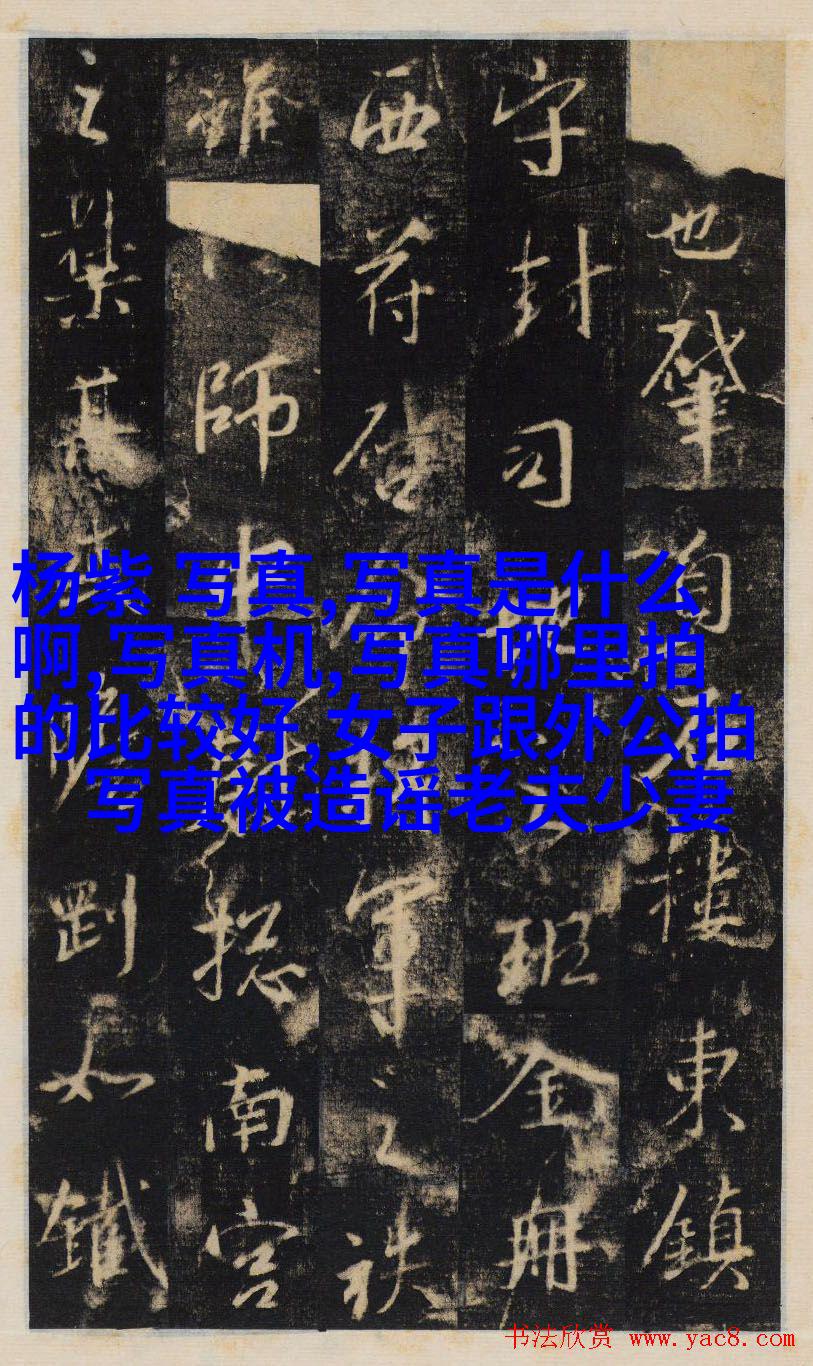 也肇自樓東鎮
守封司地班金冊
西符啓將軍之秩
師中揔南宮
之葉其如鐵
杨紫 写真,写真是什么
啊,写真机,写真哪里拍
的比较好,女子跟外公拍
写真被造谣老夫少妻
书法欣赏 www.yac8.com